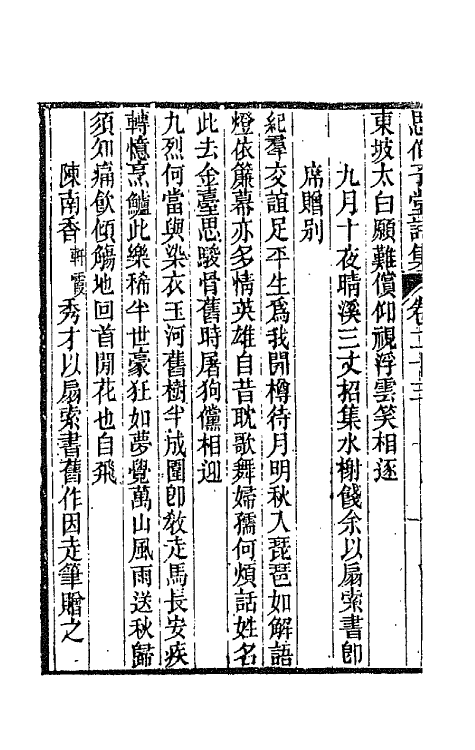 思伯子堂詩集 卷二十三
東坡太白願難償仰視浮雲笑相逐
九月十夜晴溪三丈招集水榭餞余以扇索書卽
席贈別
紀羣交誼足平生爲我開樽待月明秋入琵琶如解語
燈依簾幕亦多情英雄自昔耽歌舞婦孺何煩話姓名
此去金臺思駿骨舊時屠狗儻相迎
九烈何當與染衣玉河舊樹半成圍卽敎走馬長安疾
轉憶烹鱸此樂稀半世豪狂如夢覺萬山風雨送秋歸
須知痛飮傾觴地回首開花也自飛
陳南香軒霞秀才以扇索書舊作因走筆贈之